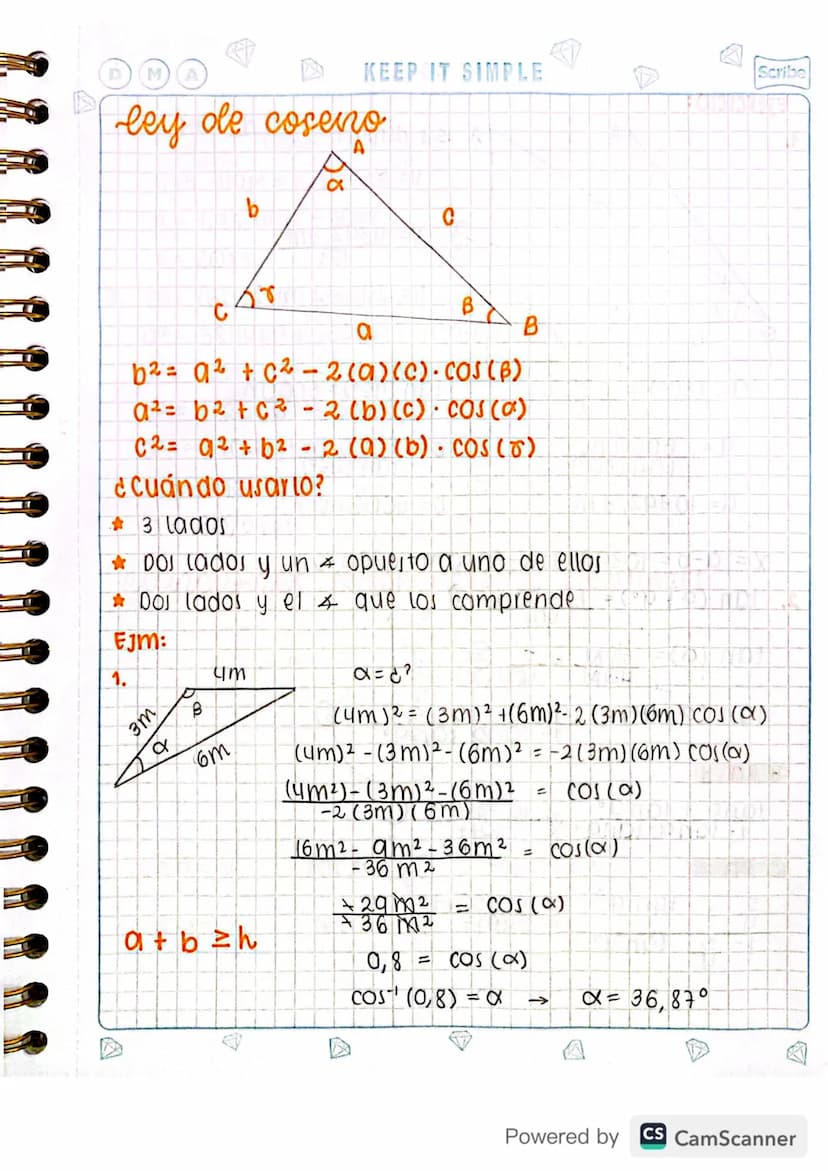 D M A
KEEP IT SIMPLE
Scribe
ley de coseno
A
α
b
c
C
γ
β
B
a
b² = a² + c² - 2(a)(c) · cos(β)
a² = b² + c² - 2(b)(c) · cos(α)
c² = a² + b² - 2(a)(b) · cos(γ)
¿Cuándo usarlo?
★ 3 lados
★ Dos lados y un ∡ opuesto a uno de ellos
★ Dos lados y el ∡ que los comprende
Ejm:
1.
4m
3m
β
α
6m
α = ¿?
(4m)² = (3m)² + (6m)² - 2(3m)(6m) cos(α)
(4m)² - (3m)² - (6m)² = -2(3m)(6m) cos(α)
(4m²) - (3m)² - (6m)² / -2(3m)(6m) = cos(α)
16m² - 9m² - 36m² / -36m² = cos(α)
-29m² / -36m² = cos(α)
a + b ≥ h
0,8 = cos(α)
cos⁻¹(0,8) = α → α = 36,87°
Powered by CS CamScanner